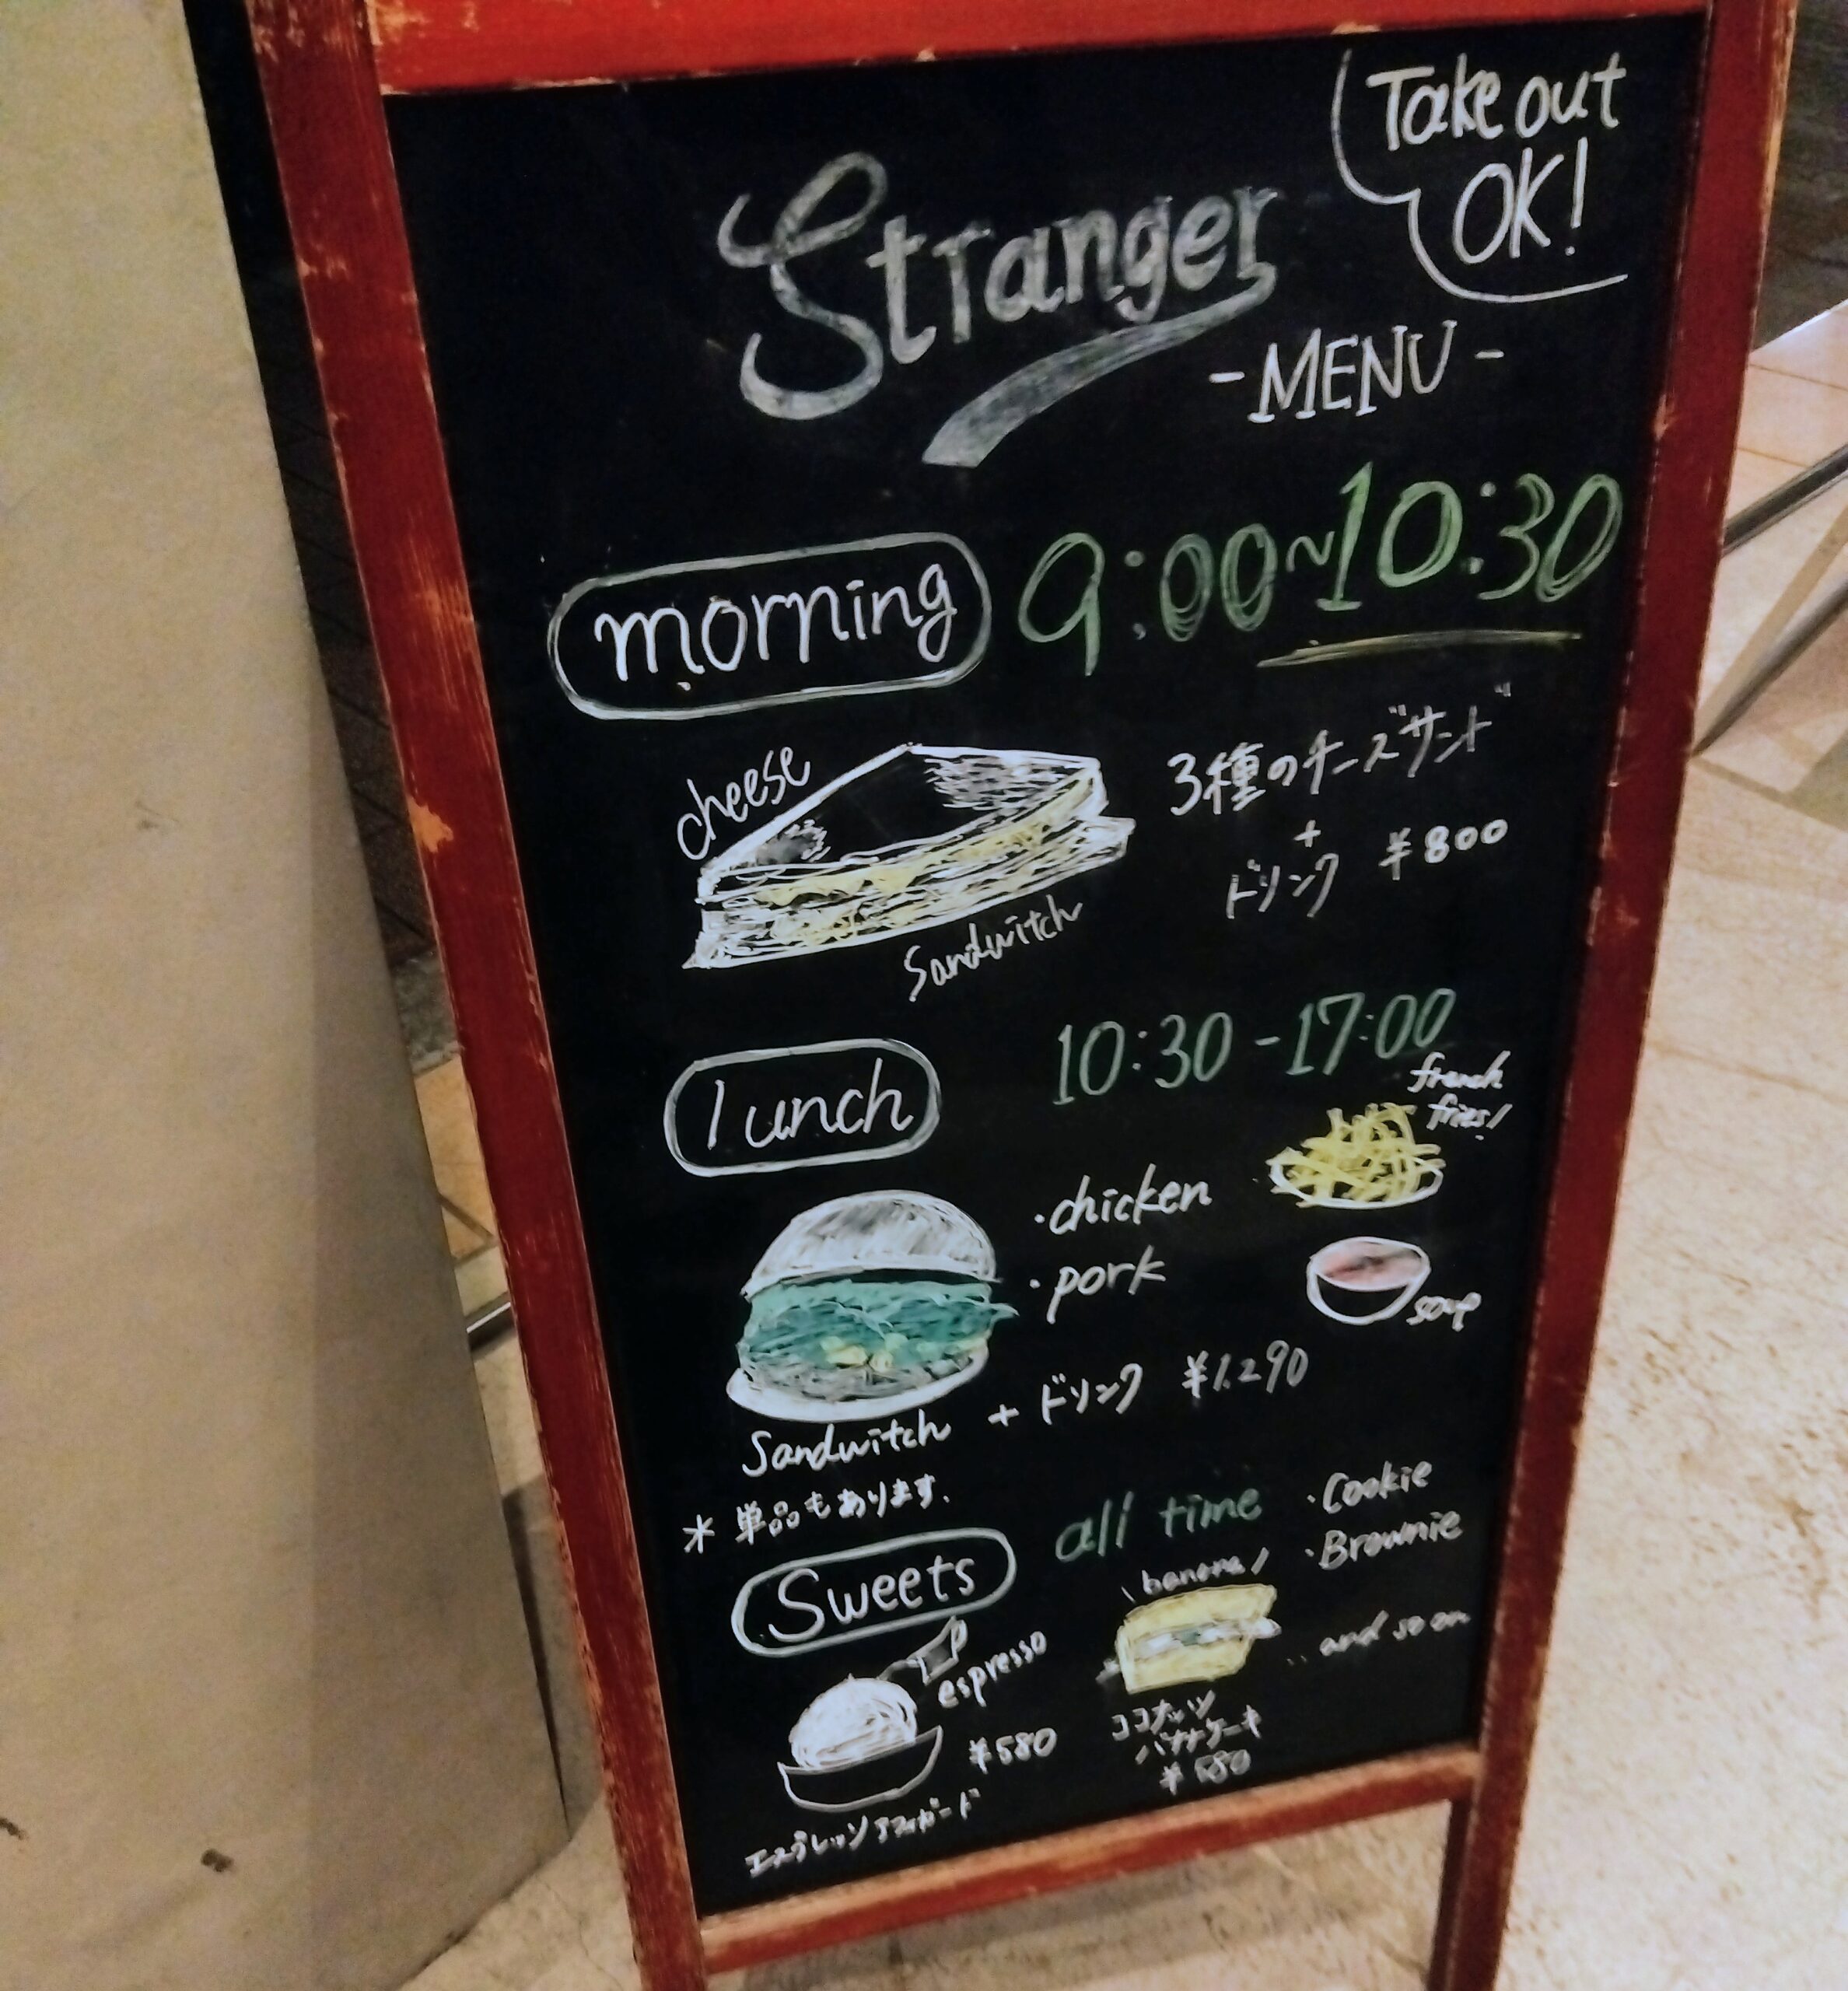 Take out
OK!
Stranger
-MENU-
morning 9:00~10:30
cheese
Sandwitch
3種のチーズサンド
+
ドリンク ¥800
lunch 10:30-17:00
french
fries!
・chicken
・pork
soup
Sandwitch + ドリンク ¥1.290
* 単品もあります.
Sweets all time
・Cookie
・Brownie
... and so on
banana
espresso
¥580
エスプレッソアフォガード
ココナッツ
バナナケーキ
¥580